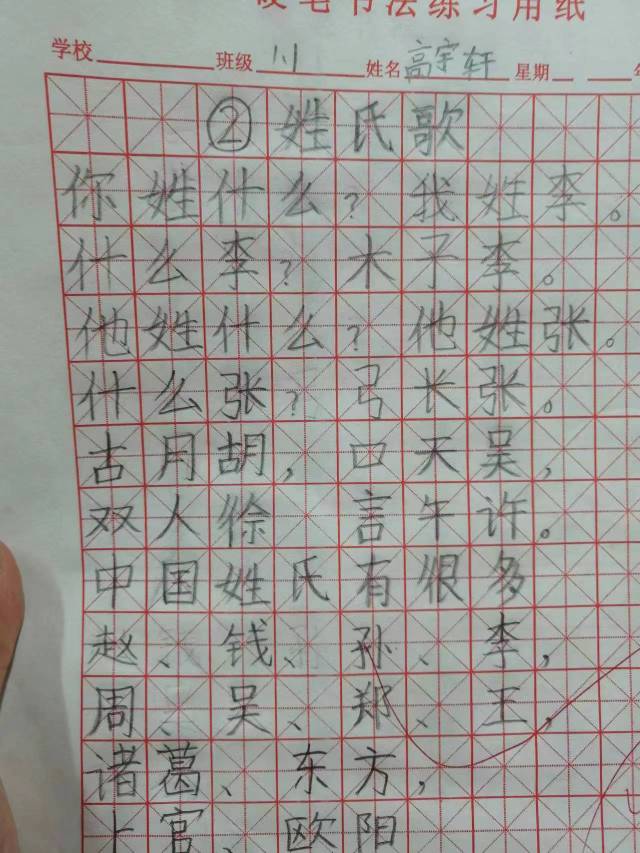 硬笔书法练习用纸
学校 班级 1.1 姓名 高宇轩 星期
②姓氏歌
你姓什么？我姓李。
什么李？木子李。
他姓什么？他姓张。
什么张？弓长张。
古月胡，口天吴，
双人徐 言午许。
中国姓氏有很多
赵、钱、孙、李，
周、吴、郑、王，
诸葛、东方，
上官、欧阳